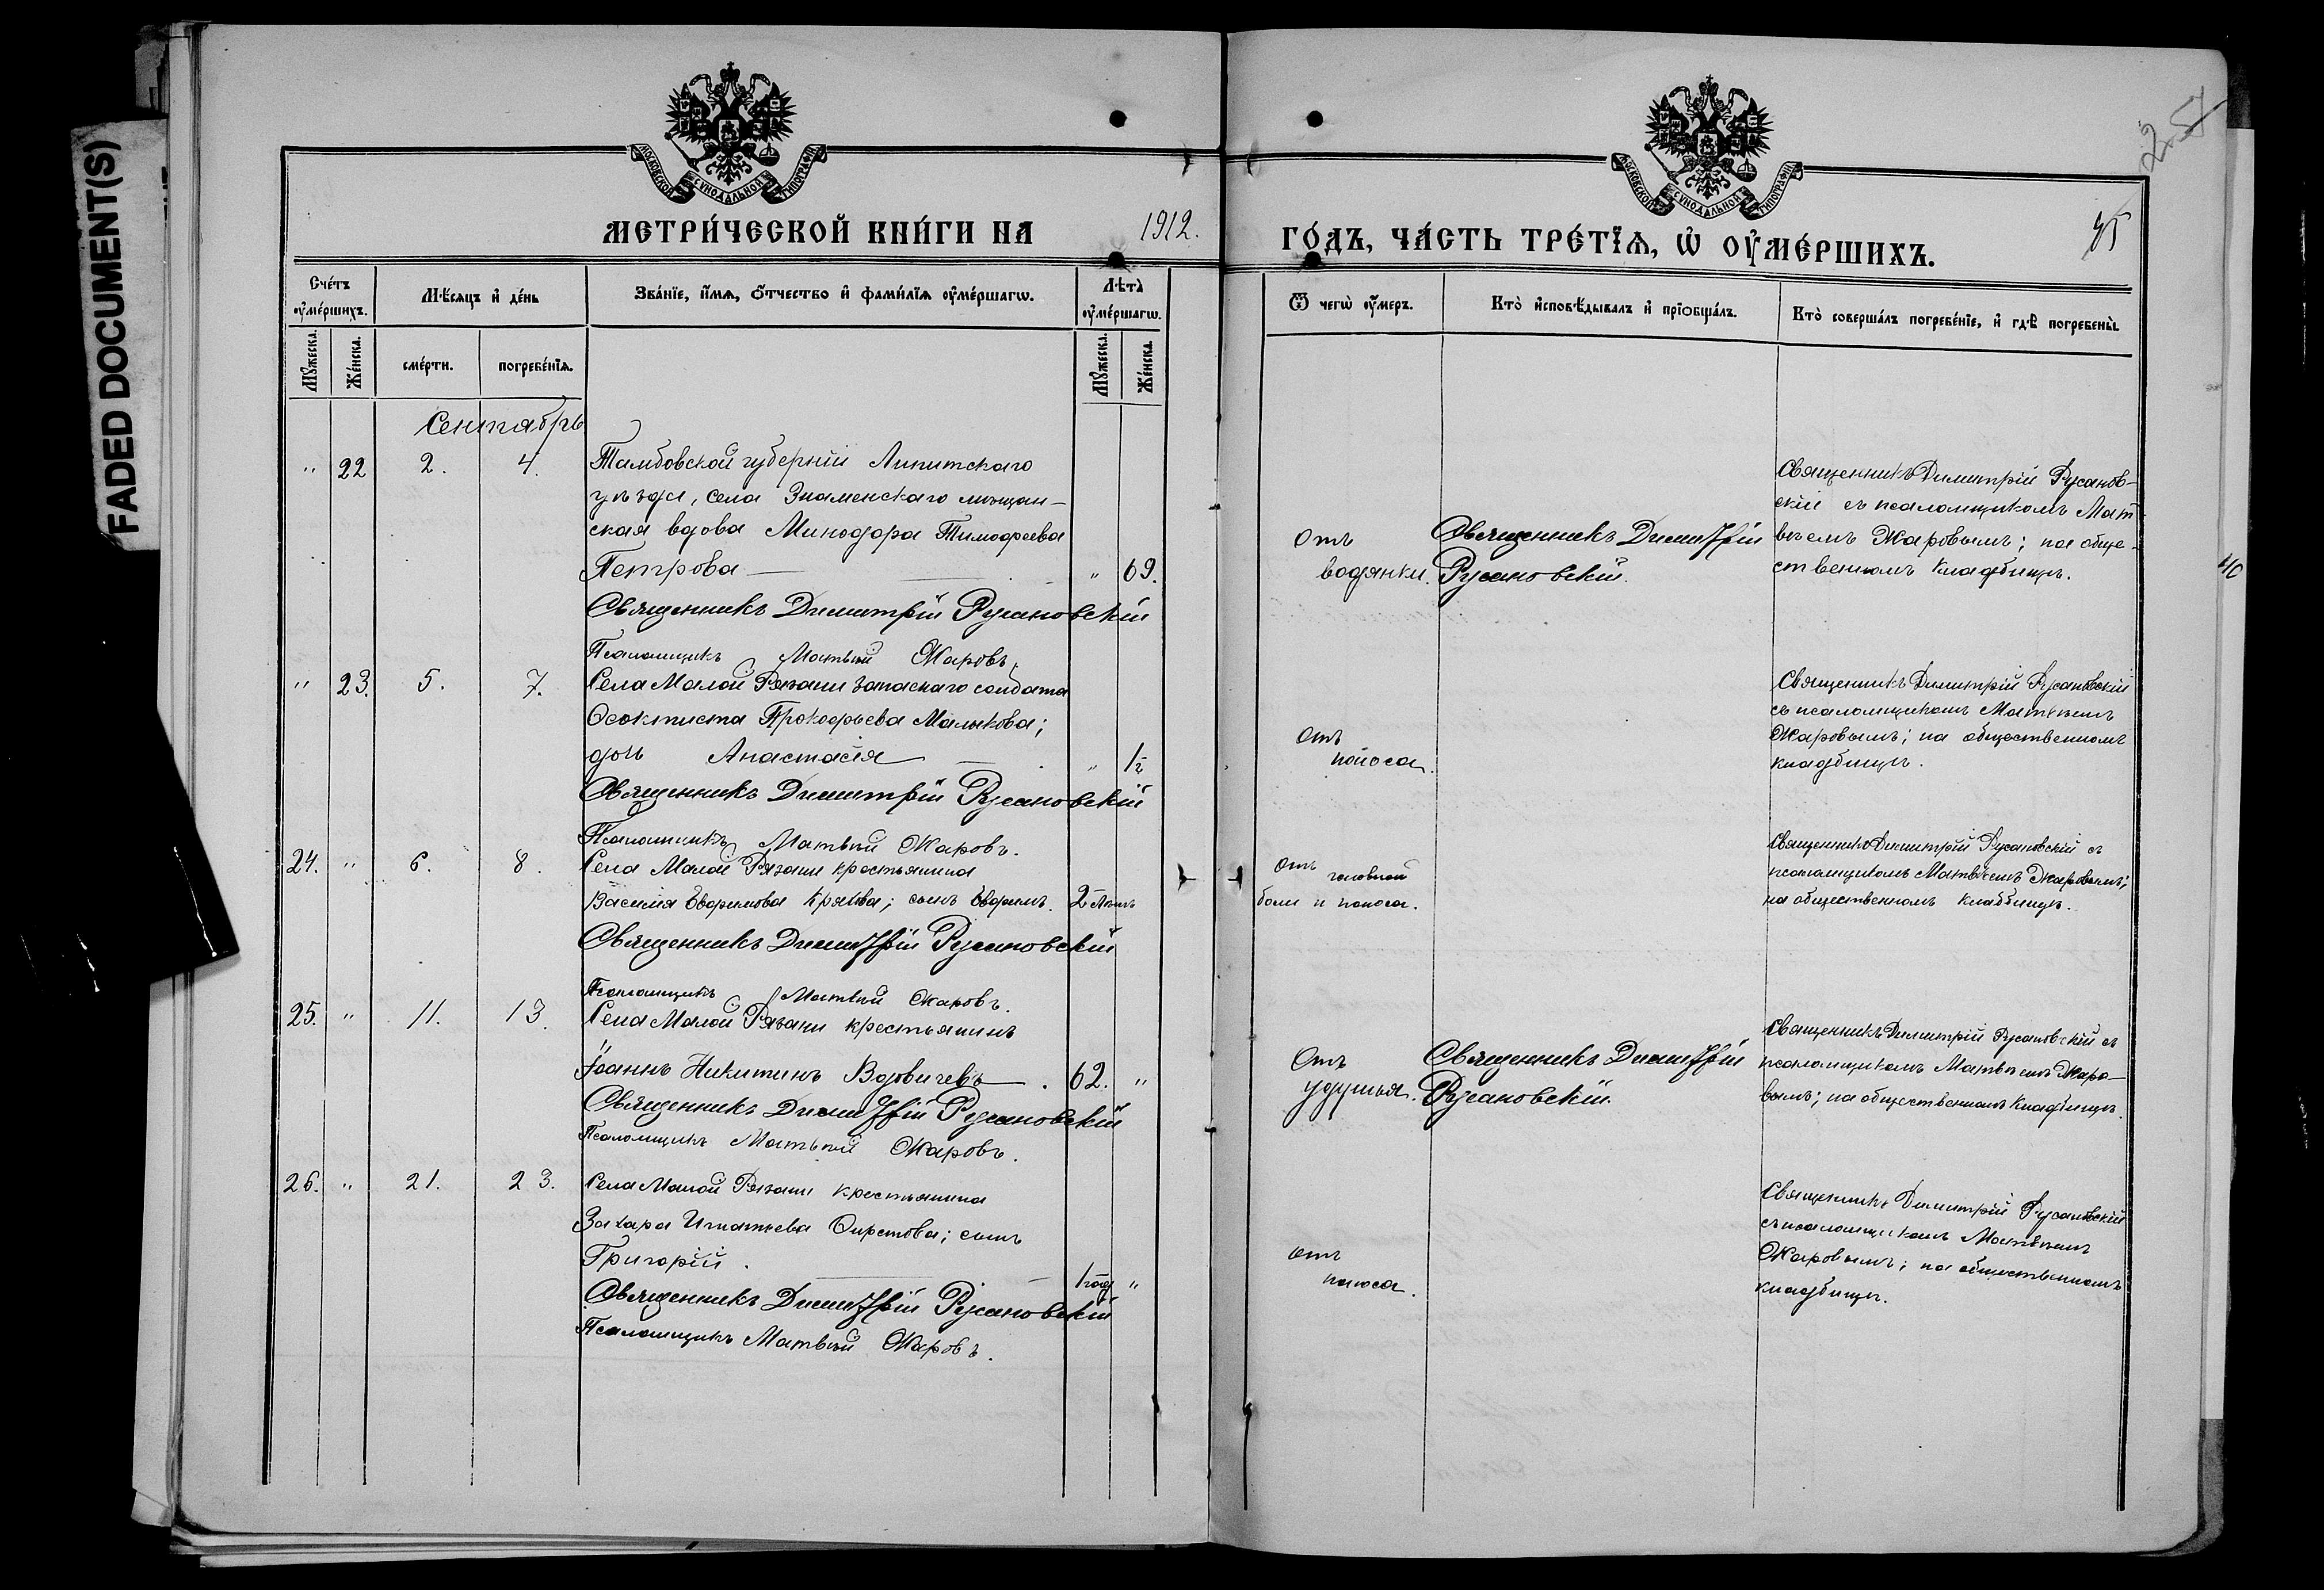 FADED DOCUMENT(S)
МОСКОВСКОЙ СУНОДАЛЬНОЙ ТИПОГРАФІИ
МЕТРИ́ЧЕСКОЙ КНИ́ГИ НА 1912.
Сче́тъ ᲂу҆ме́ршихъ.
Мѣ́сяцъ и҆ де́нь
Зва́нїе, и҆́мѧ, ѻ҆́тчество и҆ фами́лїѧ ᲂу҆ме́ршагѡ.
Лѣта̀ ᲂу҆ме́ршагѡ.
Мꙋ́жеска.
Же́нска.
сме́рти.
погребе́нїѧ.
Мꙋ́жеска.
Же́нска.
Сентябрь
" 22 2. 4. Тамбовской губерніи Липитскаго
уѣзда, села Знаменскаго мѣщан-
ская вдова Минодора Тимофеева
Петрова " 69.
Священникъ Димитрій Русановскій
Псаломщикъ Матвѣй Жаровъ.
" 23. 5. 7. Села Малой Рязани запаснаго солдата
Ѳеоктиста Прокофьева Малыкова;
дочь Анастасія " ½
Священникъ Димитрій Русановскій
Псаломщикъ Матвѣй Жаровъ.
24. " 6. 8. Села Малой Рязани крестьянина
Василія Евфимова; сынъ Евфимъ. 2 лѣтъ
Священникъ Димитрій Русановскій
Псаломщикъ Матвѣй Жаровъ.
25. " 11. 13. Села Малой Рязани крестьянинъ
Іоаннъ Никитинъ Вдовичевъ. 62. "
Священникъ Димитрій Русановскій
Псаломщикъ Матвѣй Жаровъ.
26. " 21. 23. Села Малой Рязани крестьянина
Захара Игнатьева; сынъ
Григорій. 1 годъ "
Священникъ Димитрій Русановскій
Псаломщикъ Матвѣй Жаровъ.
МОСКОВСКОЙ СУНОДАЛЬНОЙ ТИПОГРАФІИ
ГО́ДЪ, ЧА́СТЬ ТРЕ́ТЇѦ, Ѡ҆ ОУ҆МЕ́РШИХЪ.
Ѿ чегѡ̀ ᲂу҆́меръ.
Кто̀ и҆сповѣ́дывалъ и҆ прїѻбща́лъ.
Кто̀ соверша́лъ погребе́нїе, и҆ гдѣ̀ погребены̀.
Отъ
водянки.
Священникъ Димитрій
Русановскій.
Священникъ Димитрій Русанов-
скій съ псаломщикомъ Мат-
вѣемъ Жаровымъ; на обще-
ственномъ кладбищѣ.
40
Отъ
поноса.
Священникъ Димитрій Русановскій
съ псаломщикомъ Матвѣемъ
Жаровымъ; на общественномъ
кладбищѣ.
Отъ головной
боли и поноса.
Священникъ Димитрій Русановскій съ
псаломщикомъ Матвѣемъ Жаровымъ;
на общественномъ кладбищѣ.
Отъ
удушья.
Священникъ Димитрій
Русановскій.
Священникъ Димитрій Русановскій съ
псаломщикомъ Матвѣемъ Жаро-
вымъ; на общественномъ кладбищѣ.
Отъ
поноса.
Священникъ Димитрій Русановскій
съ псаломщикомъ Матвѣемъ
Жаровымъ; на общественномъ
кладбищѣ.